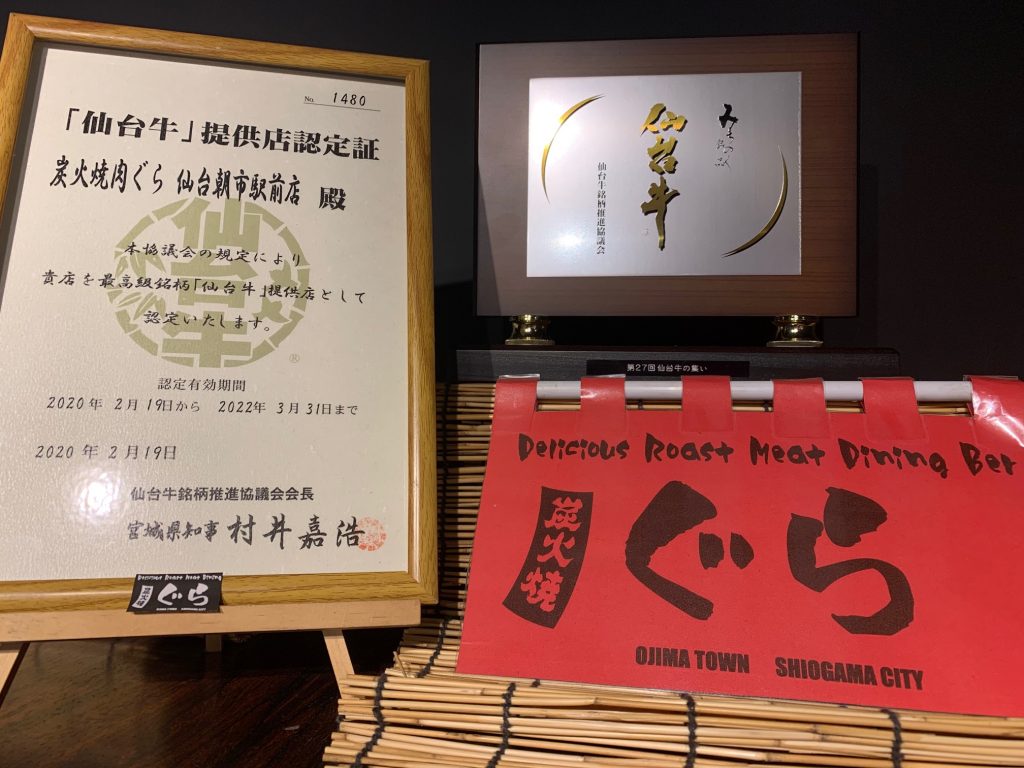 No. 1480
「仙台牛」提供店認定証
炭火焼肉ぐら 仙台朝市駅前店 殿
仙台牛
本協議会の規定により
貴店を最高級銘柄「仙台牛」提供店として
認定いたします。
®
認定有効期間
2020年 2月19日から 2022年 3月31日まで
2020年 2月19日
仙台牛銘柄推進協議会会長
宮城県知事 村井嘉浩
Delicious Roast Meat Dining
炭火焼
ぐら
OJIMA TOWN SHIOGAMA CITY
仙台牛
仙台牛銘柄推進協議会
第27回仙台牛の集い
Delicious Roast Meat Dining Ber
炭火焼
ぐら
OJIMA TOWN SHIOGAMA CITY